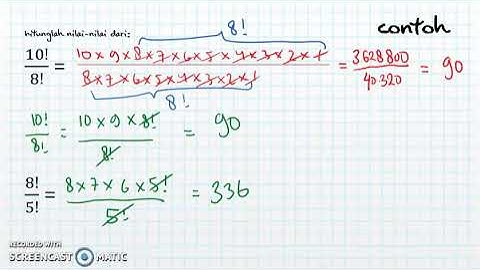 hitunglah nilai-nilai dari:
contoh
8!
10!/8! = 10×9×8×7×6×5×4×3×2×1 / 8×7×6×5×4×3×2×1 = 3628800/40320 = 90
8!
10!/8! = 10×9×8!/8! = 90
8!/5! = 8×7×6×5!/5! = 336
RECORDED WITH
SCREENCAST MATIC